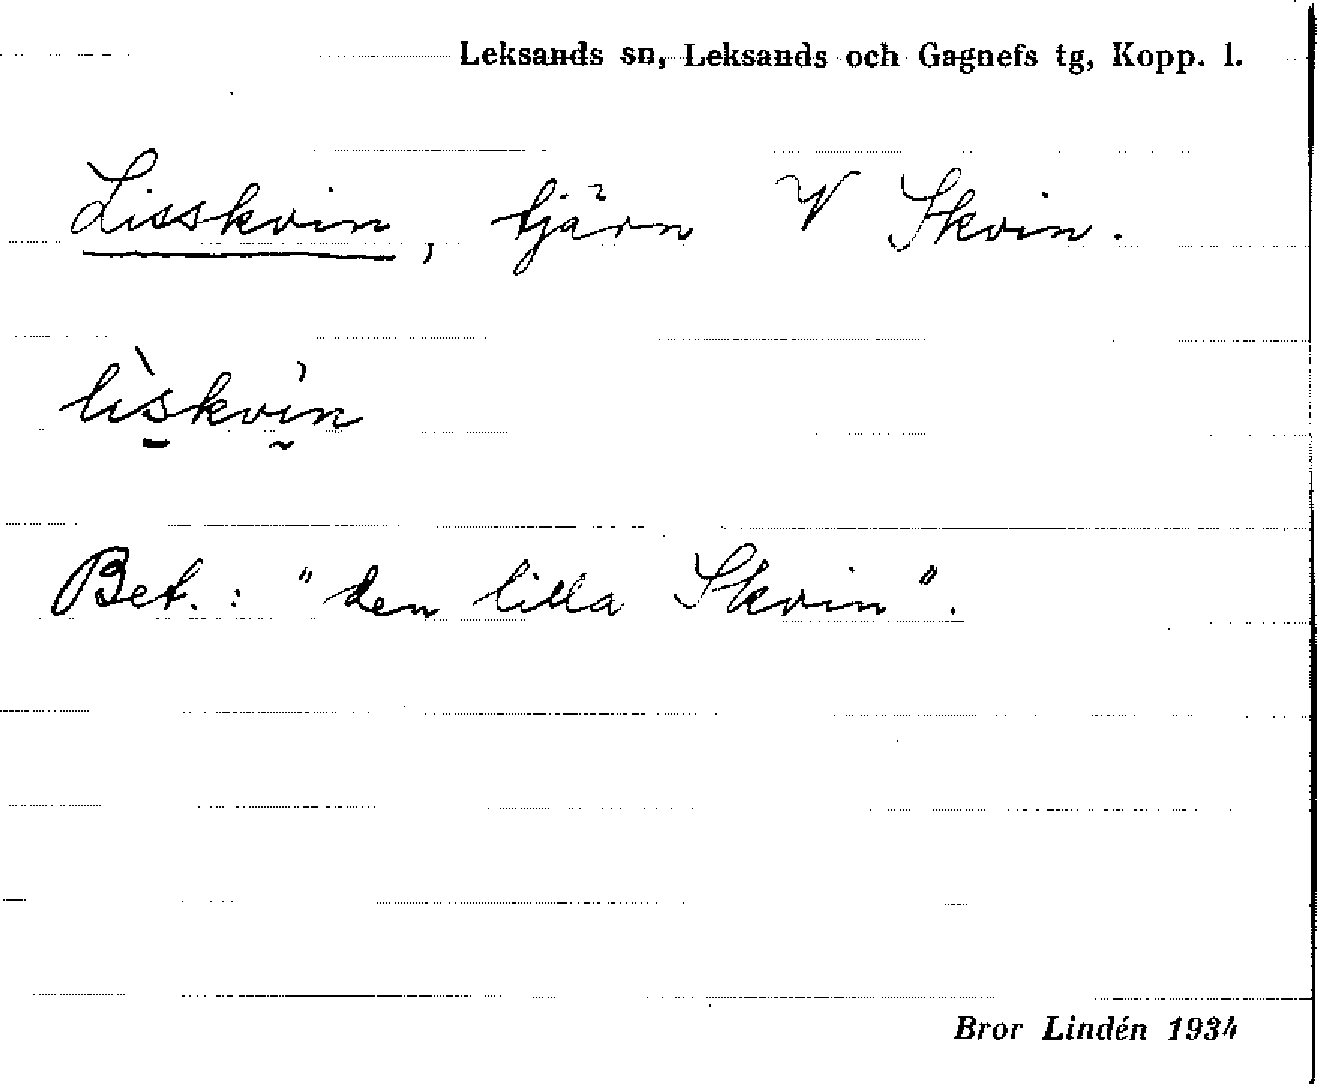 Leksands sn, Leksands och Gagnefs tg, Kopp. l.
Lisskvin, tjärn V Skvin.
lìs̱kvḭ̀n
Bet.: "den lilla Skvin".
Bror Lindén 1934